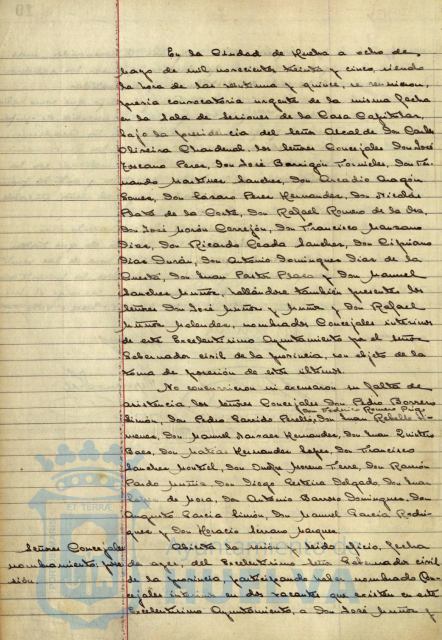 En la Ciudad de Huelva a ocho de
mayo de mil novecientos treinta y cinco, siendo
la hora de las veintiuna y quince, se reunieron,
previa convocatoria urgente de la misma fecha
en la Sala de sesiones de la Casa Capitular,
bajo la presidencia del Señor Alcalde Don Carlos
Oliveira Chardenal los Señores Concejales Don José
Toscano Perez, Don José Barrigón Fornieles, Don Fer-
nando Martinez Sanchez, Don Arcadio Aragón
Gomez, Don Lázaro Perez Hernandez, Don Nicolás
de la Corte, Don Rafael Romero de la Osa,
Don José Morón Cerrejón, Don Francisco Manzano
Diaz, Don Ricardo Ceada Sanchez, Don Cipriano
Diaz Durán, Don Antonio Dominguez Diaz de la
Don Juan y Don Manuel
Sanchez Muñoz, hallándose también presentes los
señores Don José Muñoz y Muñoz y Don Rafael
Muñoz nombrados Concejales interinos
de este Excelentisimo Ayuntamiento por el Señor
Gobernador civil de la provincia, con objeto de la
toma de posesión de estos últimos.
No concurrieron ni excusaron su falta de
asistencia los señores Concejales Don Pedro Borrero
Don Federico Romero
Limón, Don Pedro Garrido Perelló, Don Juan Rebollo
Don Manuel Hernandez, Don Juan Quintero
Baez, Don Matías Hernandez Lopez, Don Francisco
Sanchez Don Duque Moreno Don Ramón
Pardo Don Diego Delgado, Don Juan
Lopez de Mora, Don Antonio Barroso Dominguez, Don
Augusto Garcia Simón, Don Manuel Garcia Rodri-
guez y Don Horacio Serrano Marquez.
Señores Concejales
nombramiento, pose-
sión
Abierta la sesión y leído oficio, fecha
de ayer, del Excelentisimo Señor Gobernador civil
de la provincia, participando haber nombrado Con-
cejales interinos en dos vacantes que existen en este
Excelentisimo Ayuntamiento, a Don José Muñoz y